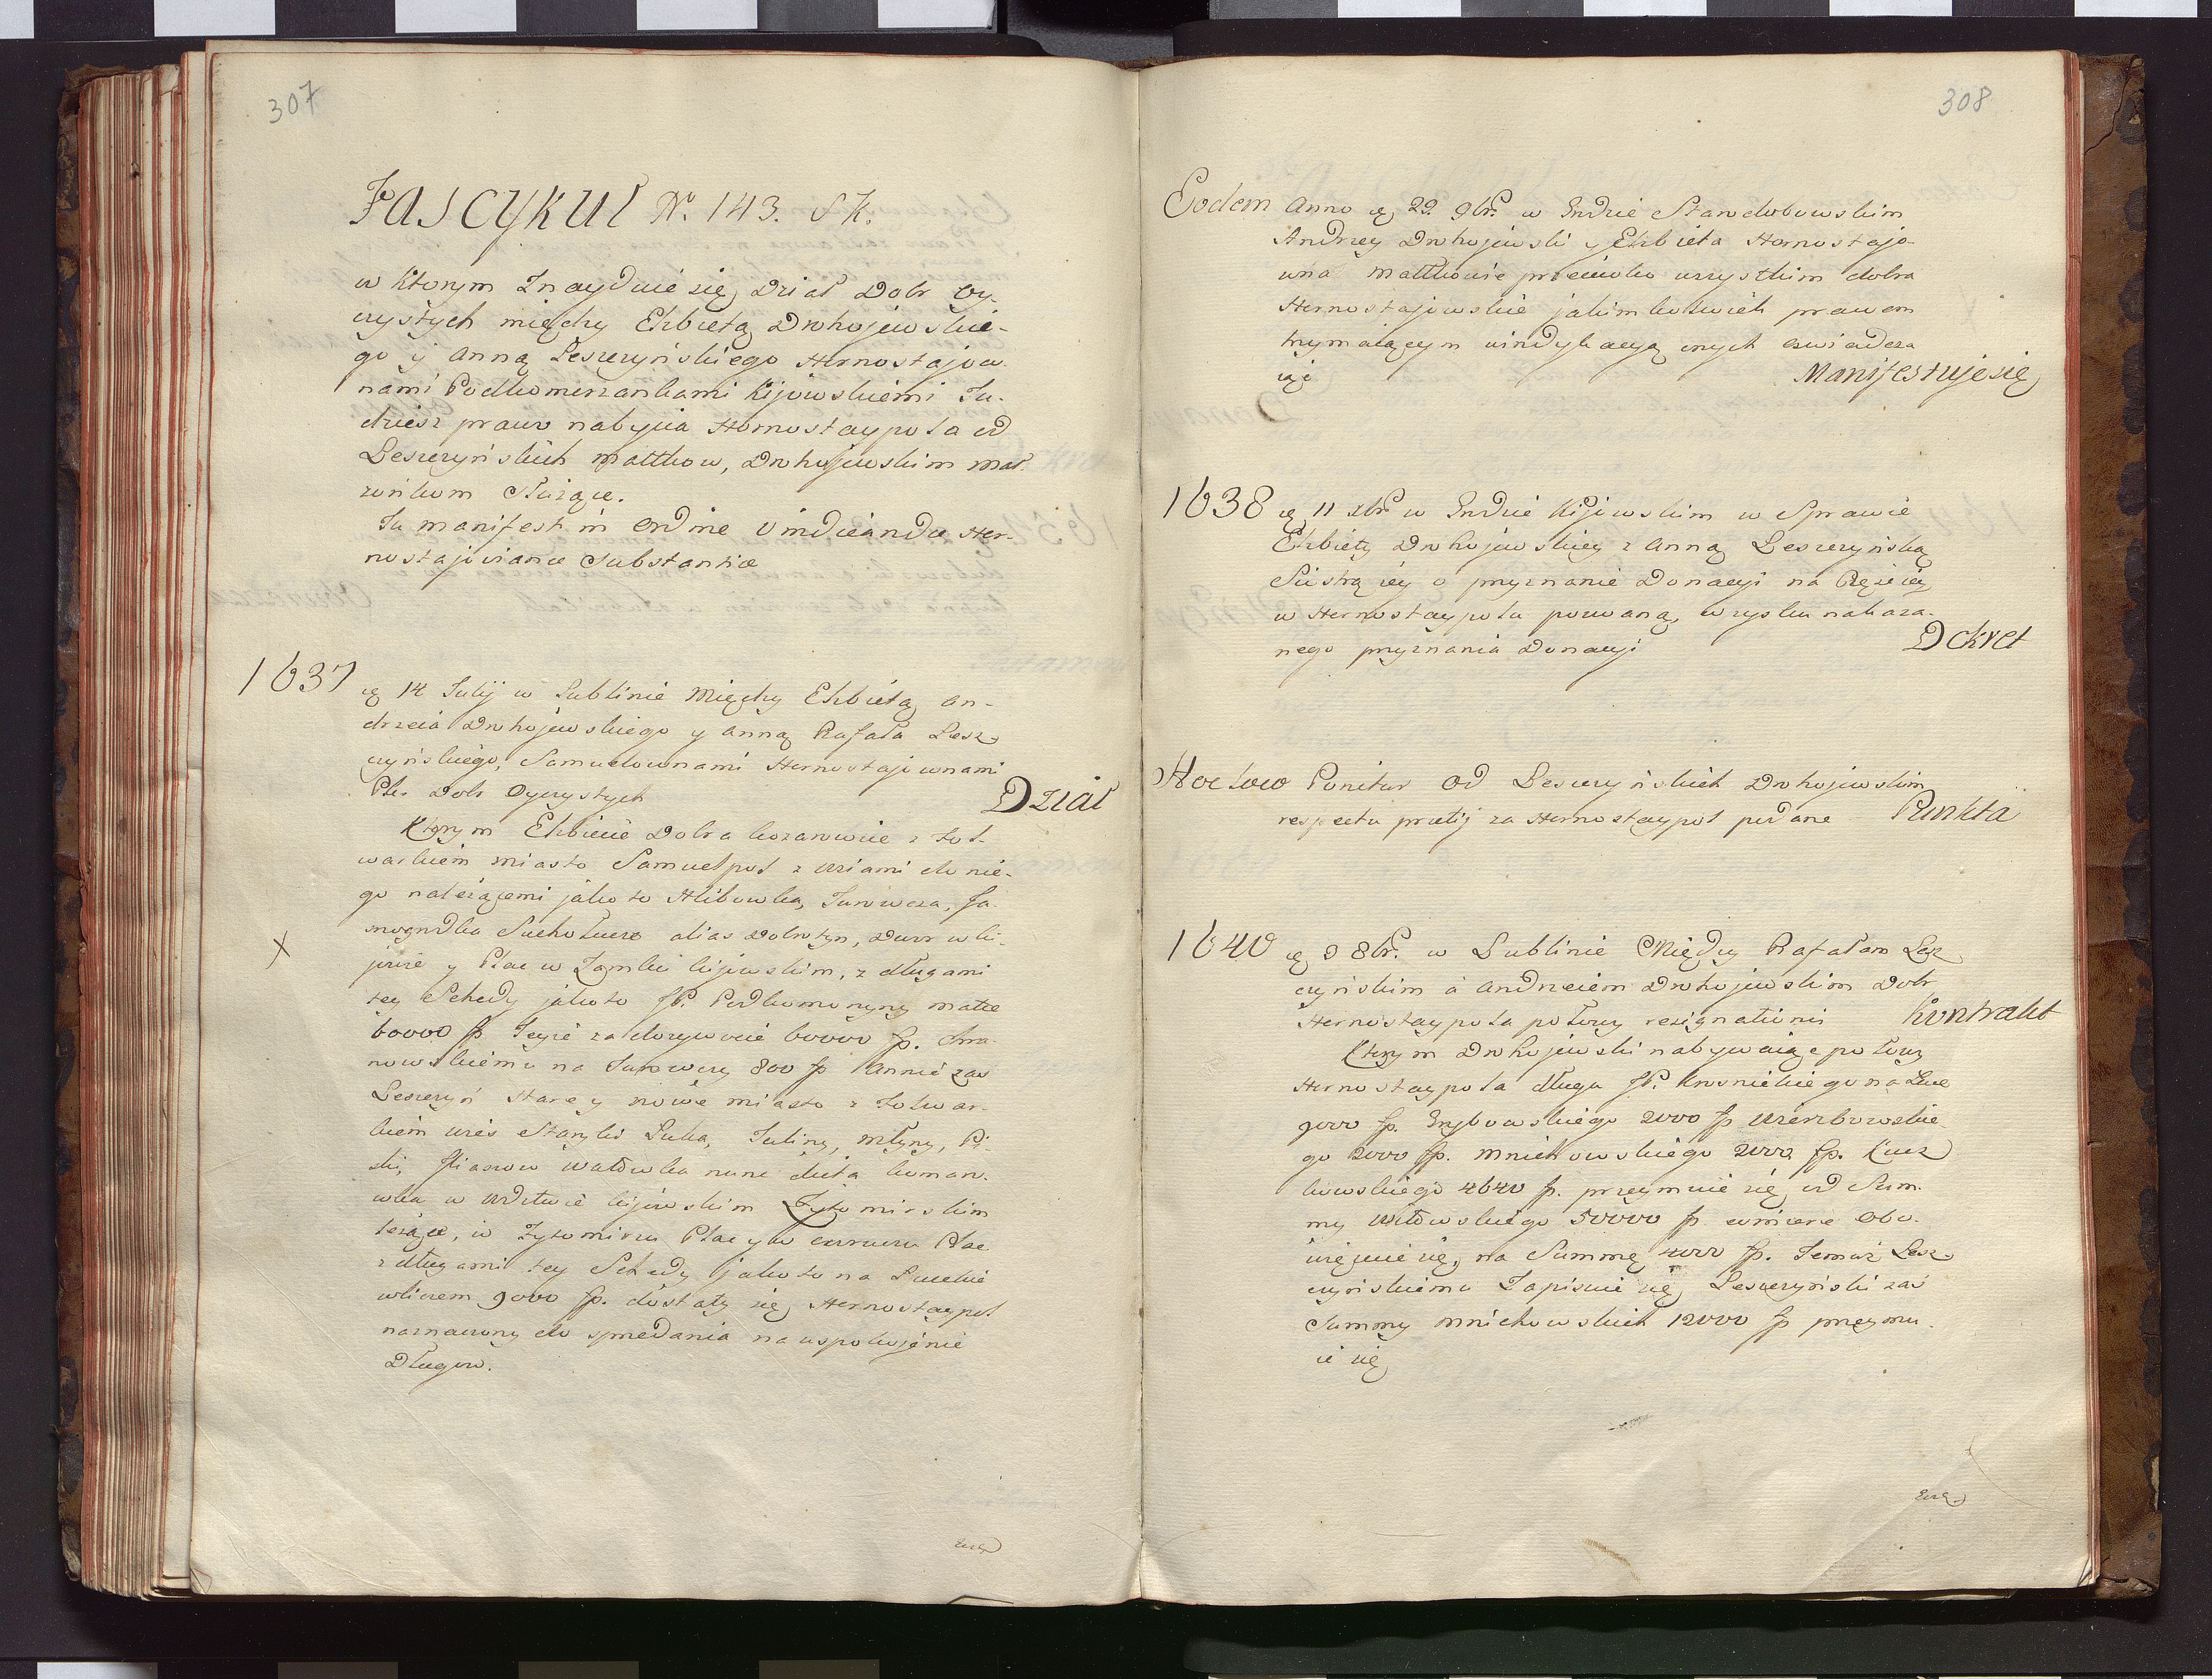 307
FASCYKUŁ Nº. 143. SK.
w Ktorym Znayduie się Dział Dobr Oy-
czystych między Elżbietą Drohojewskie-
go y Anną Leszczyńskiego Hornostajow-
nami Podkomorzankami Kijowskiemi Tu-
dziesz prawo nabycia Hornostaypola od
Leszczyńskich Małkow, Drohojewskim Mał-
żonkom służące.
Tu manifest in ordine vindicandae Hor-
nostajovianae Substantiae
1637 ię 14 Julij w Lublinie Między Elżbietą An-
drzeia Drohojewskiego y Anną Rafała Lesz-
czyńskiego, Samuelownami Hornostajownami
Dobr Oyczystych Dział
Ktorym Elżbiecie Dobra kozarowice z fol-
warkiem miasto Samuelpol z wsiami do nie-
go należącemi jako to Hlibowka, Jurowcza, Ja-
snogrodka Suchołucze alias Dobrotyn, Dwor w Ki-
jowie y Plac w Zamku kijowskim, z długami
tey Schedy jako to JP. Podkomorzyny matce
60000 fp Teyże za dożywocie 60000 fp.
nowskiemu na Jurowczy 800 fp Annie zaś
Leszczyń Stare y nowe miasto z folwar-
kiem wieś Staryki Luka, Juliny, młyny, Pi-
ski, Wałówka nunc dicta
wka w Wdztwie kijowskim Żytomirskim
leżące, w Żytomirzu Plac y w Plac
z długami tey Schedy jako to na Łuczkie
wliczem 9000 fp. dostały się, Hornostaypol
naznaczony do sprzedania na uspokojenie
Długow.
308
Eodem Anno ię 29. 9br. w Grodzie Starodobowskim
Andrzey Drohojewski y Elżbieta Hornostajo-
wna małkowie przeciwko wszystkim dobra
Hornostajowskie jakimkolwiek prawem
trzymaiącym vindykacyą onych oswiadcza
iąc Manifestuje się
1638 ię 11 xbr. w Grodzie Kijowskim w Sprawie
Elżbiety Drohojewskiey z Anną Leszczyńską
Siostrą iey o przyznanie Donacyi na Część iey
w Hornostaypolu pozwaną, w zysku nakaza-
nego przyznania Donacyi Dekret
Hoc loco Ponitur Od Leszczyńskich Drohojewskim
respectu pretij za Hornostaypol podane Punkta
1640 ię 9 8br. w Lublinie Między Rafałam Lesz
czyńskim a Andrzeiem Drohojewskim Dobr
Hornostaypola połowy resignationis Kontrakt
Ktorym Drohojewski nabywaiąc połowy
Hornostaypola długu JP. Krosnickiego na
9000 fp. Grzybowskiego 2000 fp
go 2000 fp. Mnichowskiego 2000 fp.
kowskiego 4640 fp. przeymuie się od Sum-
my Witowskiego 50000 fp czwierć Obo-
więzuie się, na Summę 4000 fp. Temuż Lesz-
czyńskiemu Zapisuie się, Leszczyński zaś
Summy Mnichowskich 12000 fp przeymu-
ie się